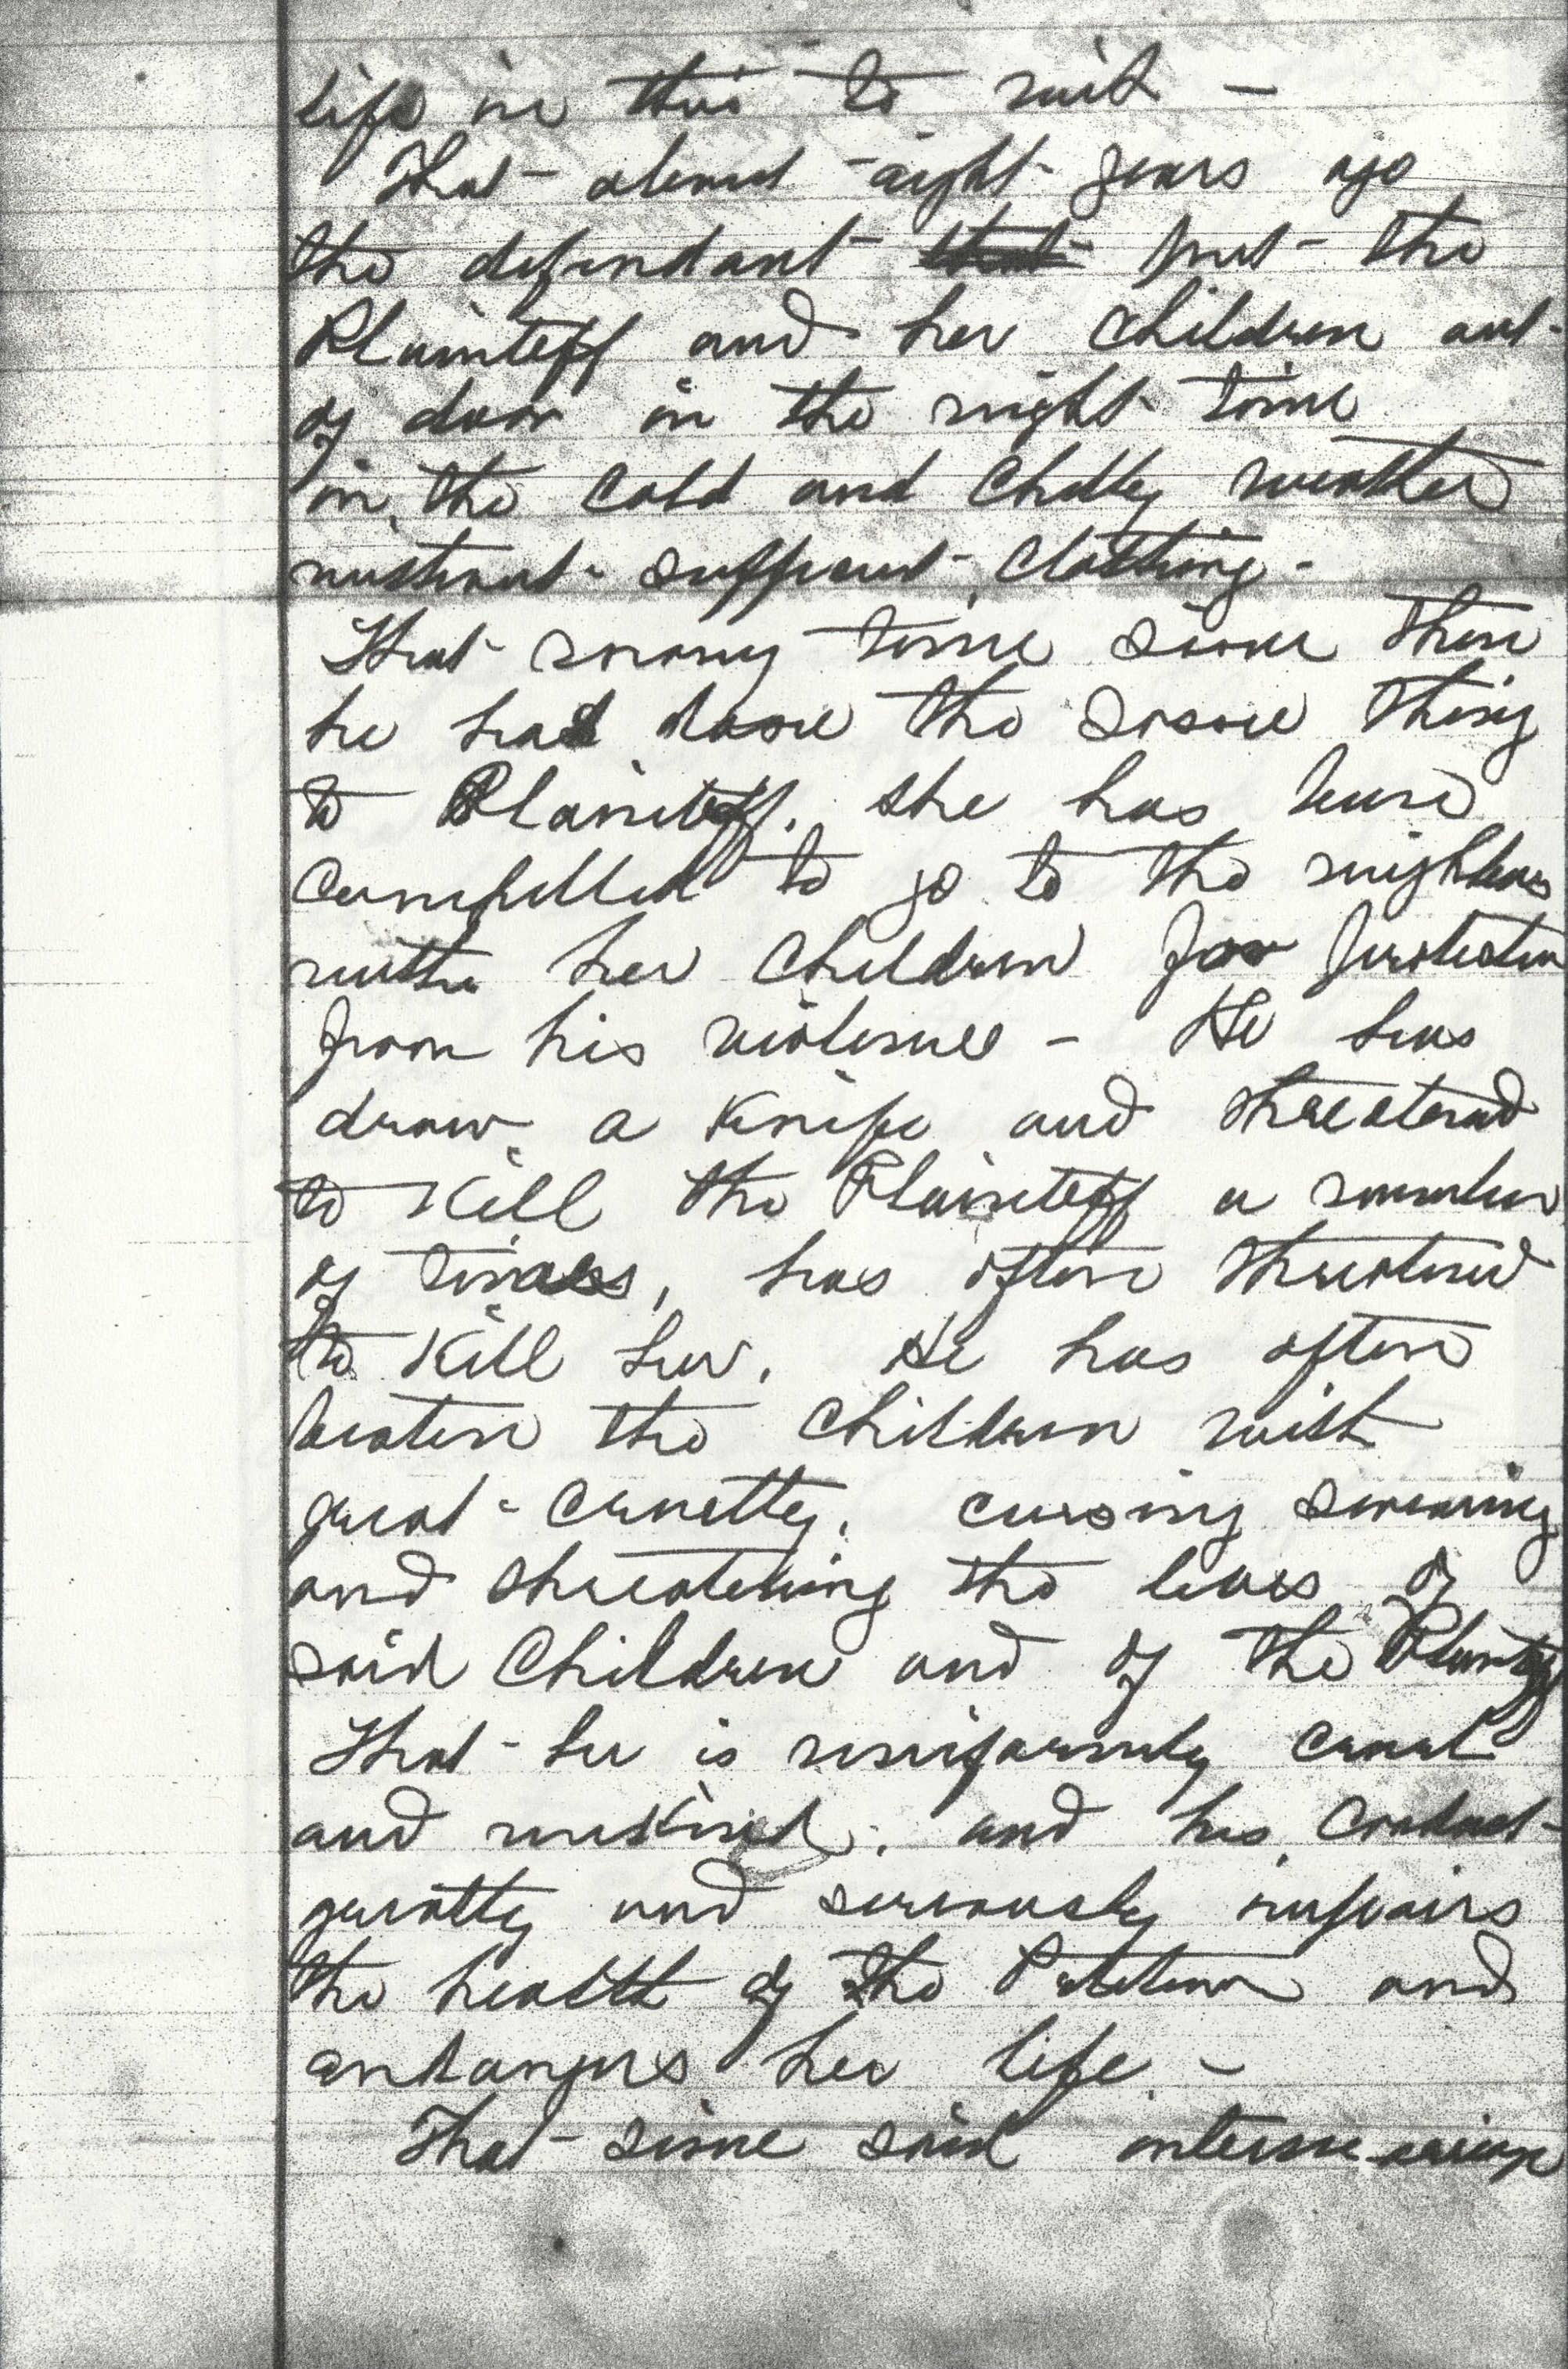 life in this to wit –
That about eight years ago
the defendant ~~that~~ put the
Plaintiff and her children out
of door in the night time
in the cold and chilly weather
without sufficient clothing –
That many time since then
he had done the same thing
to Plaintiff. She has been
compelled to go to the neighbors
with her children for protection
from his violence – He has
draw a knife and threatened
to kill the Plaintiff a number
of times, has often threatened
to kill her. He has often
beaten the children with
great cruelty. cursing swearing
and threatening the lives of
said children and of the Plaintiff
That he is uniformly cruel
and unkind, and his conduct
greatly and seriously impairs
the health of the Petitioner and
endangers her life –
That since said intermarriage